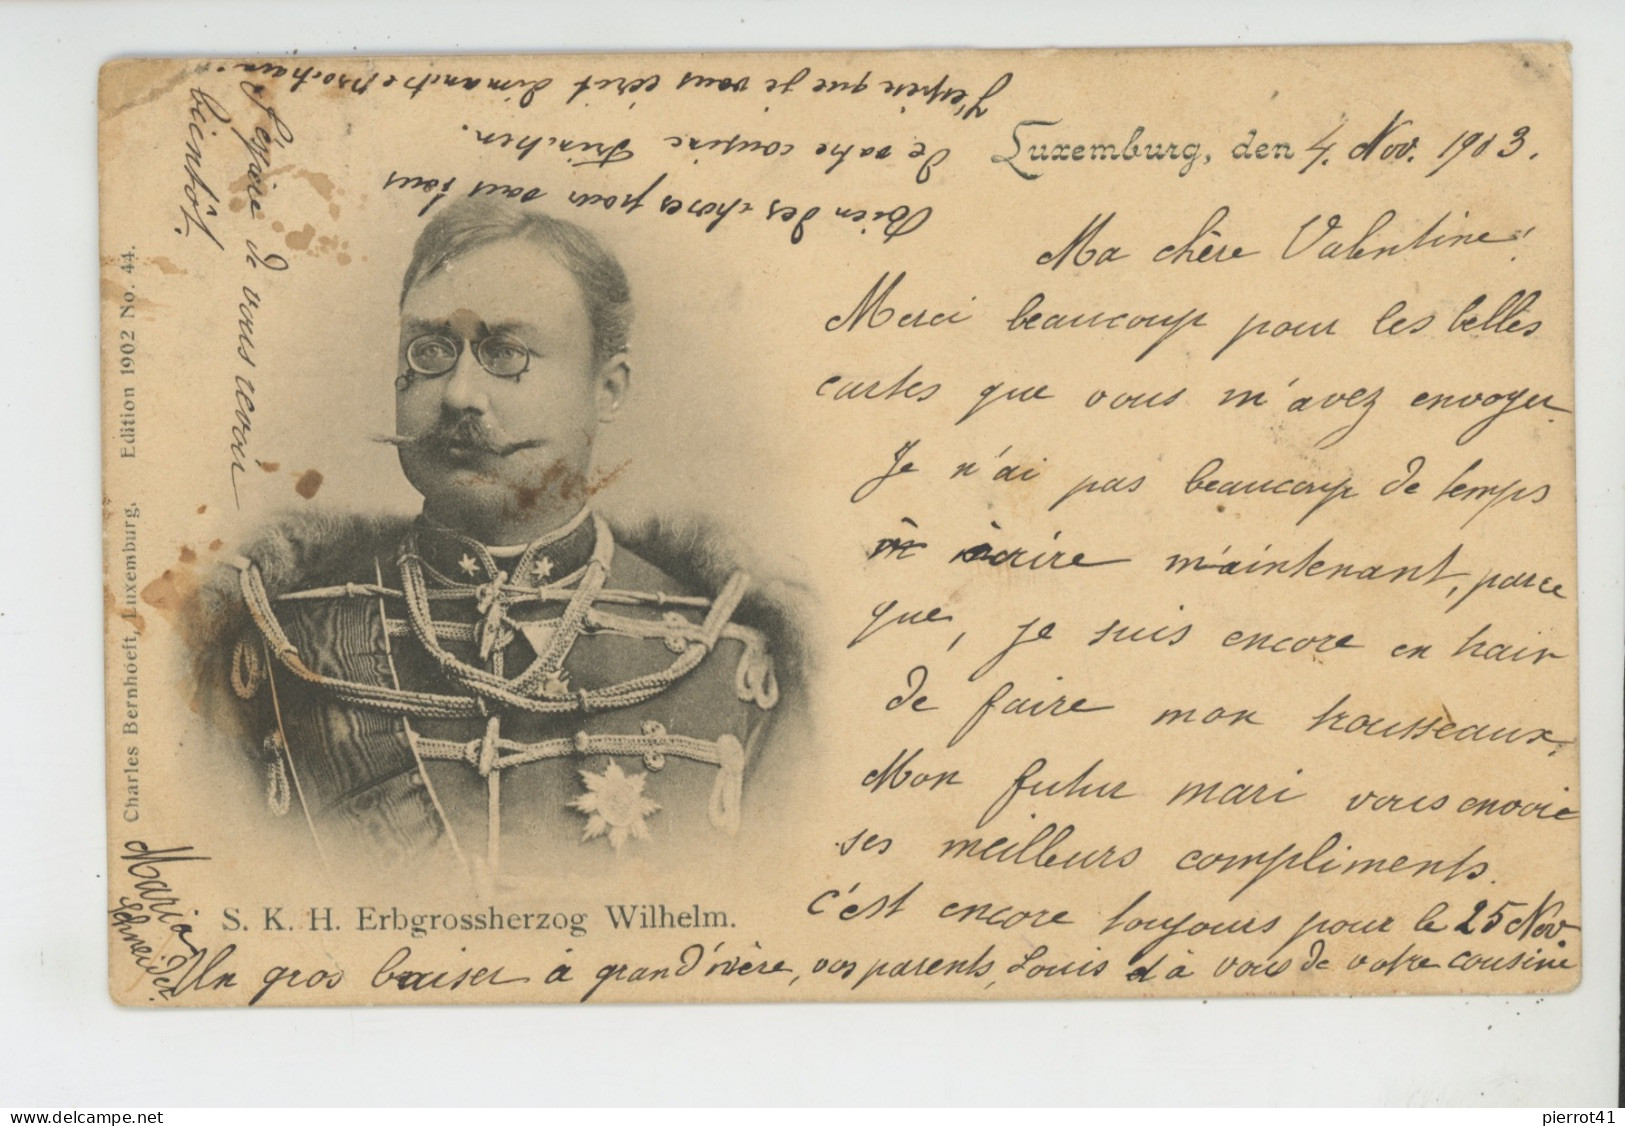 Luxemburg, den 4. Nov. 1903.
Ma chère Valentine!
Merci beaucoup pour les belles
cartes que vous m'avez envoyer
Je n'ai pas beaucoup de temps
m écrire maintenant, parce
que, je suis encore en train
de faire mon trousseaux.
Mon futur mari vous envoie
ses meilleurs compliments.
c'est encore toujours pour le 25 Nov
Un gros baiser à grand'mère, vos parents, Louis et à vous de votre cousine
Maria
Schneider.
J'espère de vous revoir
bientôt.
Bien des choses pour vous tous
de votre cousine
J'espère que je vous écrit dimanche prochain.
S. K. H. Erbgrossherzog Wilhelm.
Charles Bernhoeft, Luxemburg. Edition 1902 No. 44.
www.delcampe.net
pierrot41